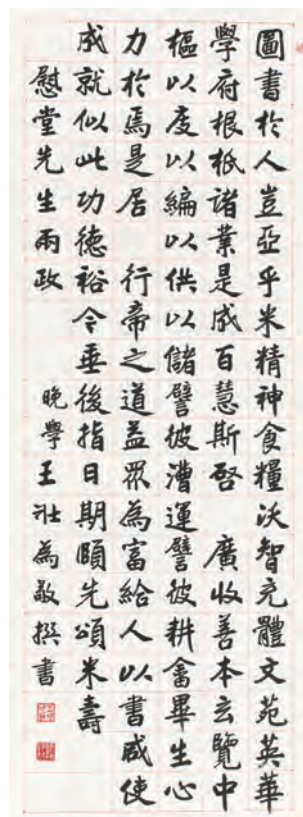 圖書於人豈亞乎米精神食糧沃智充體文苑英華
學府根柢諸業是成百慧斯啓 廣收善本玄覽中
樞以庋以編以供以儲譬彼漕運譬彼耕畬畢生心
力於焉是居 行帝之道益眾為富給人以書咸使
成就似此功德裕今垂後指日期頤先頌米壽
慰堂先生兩政 晚學王壯為敬撰書